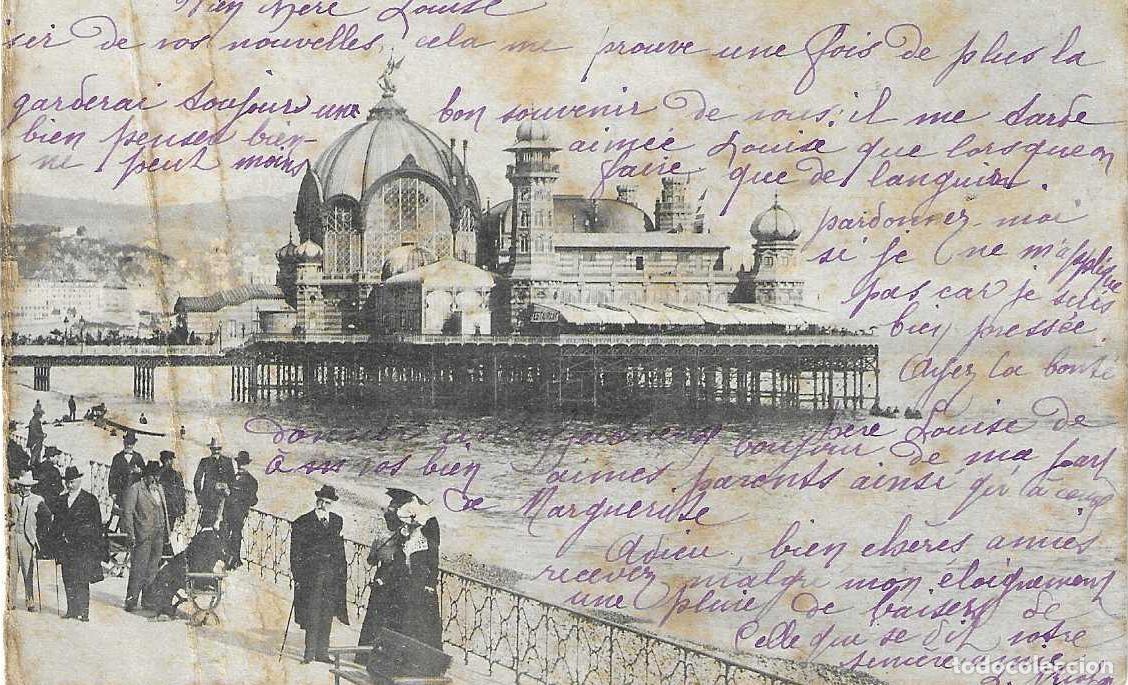 Bien chère Louise
de vos nouvelles, cela me prouve une fois de plus la
garderai toujours une bon souvenir de vous, il me tarde
bien penser bien aimée Louise que lorsque on
ne peut moins faire que de languir.
pardonnez moi
si je ne m'applique
pas car je suis
bien pressée
Ayez la bonté
RESTAURANT
bonjour Louise de
à vos bien aimés parents ainsi qu'à
de Marguerite
de ma part
Adieu, bien chères amies
recevez malgré mon éloignement
une pluie de baisers de
Celle que se dit votre
amie
todocoleccion